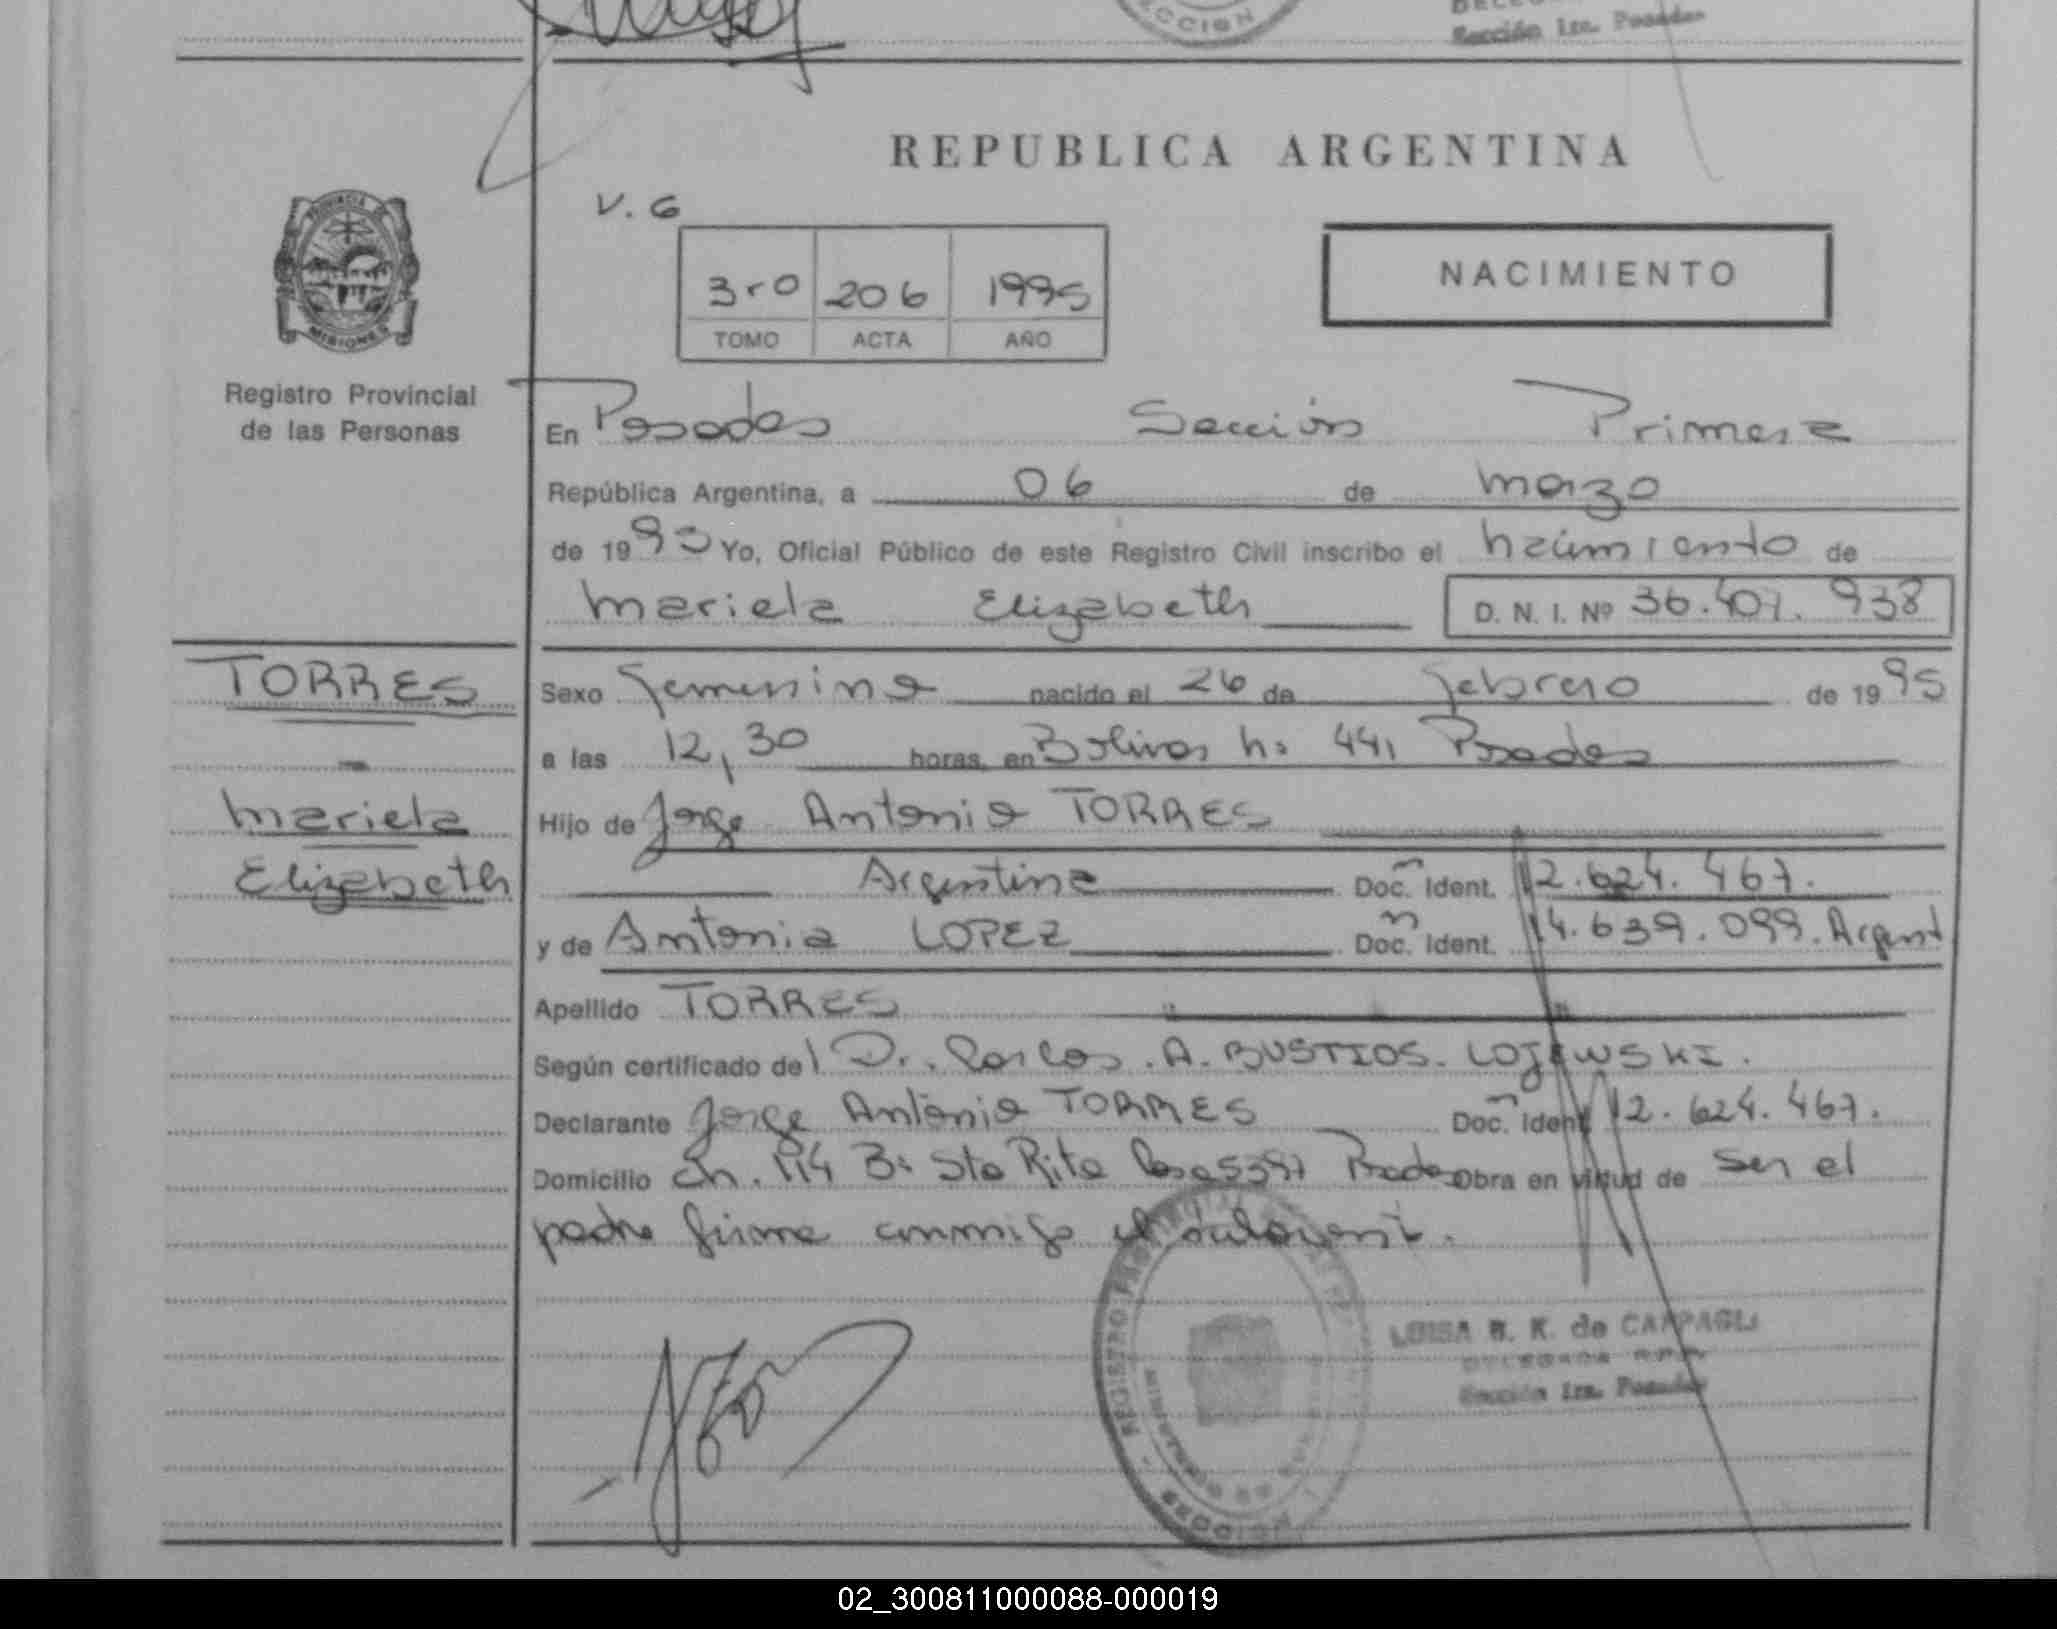 CCION
Sección 1ra. Posadas
REPUBLICA ARGENTINA
V. 6
3ro 206 1995
TOMO ACTA AÑO
NACIMIENTO
PROVINCIA DE
MISIONES
Registro Provincial
de las Personas
En Posadas Sección Primera
República Argentina, a 06 de marzo
de 1995 Yo, Oficial Público de este Registro Civil inscribo el nacimiento de
Mariela Elizabeth D. N. I. Nº 36.407.938
TORRES
Mariela
Elizabeth
Sexo Femenino nacido el 26 de febrero de 1995
a las 12,30 horas, en Bolivar Nº 441 Posadas
Hijo de Jorge Antonio TORRES
Argentina Doc. Ident. 12.624.467.
y de Antonia LOPEZ Doc. Ident. 14.639.099. Argent
Apellido TORRES
Según certificado del Dr. Carlos A. BUSTIOS. LOJEWSKI.
Declarante Jorge Antonio TORRES Doc. Ident 12.624.467.
Domicilio Ch. 114 Bº Sta Rita Casa 5397 Posadas Obra en virtud de ser el
padre firma conmigo el declarant.
LUISA B. K. de CAPPAGLI
DELEGADA R.P.P.
Sección 1ra. Posadas
REGISTRO
SECCION
02_300811000088-000019